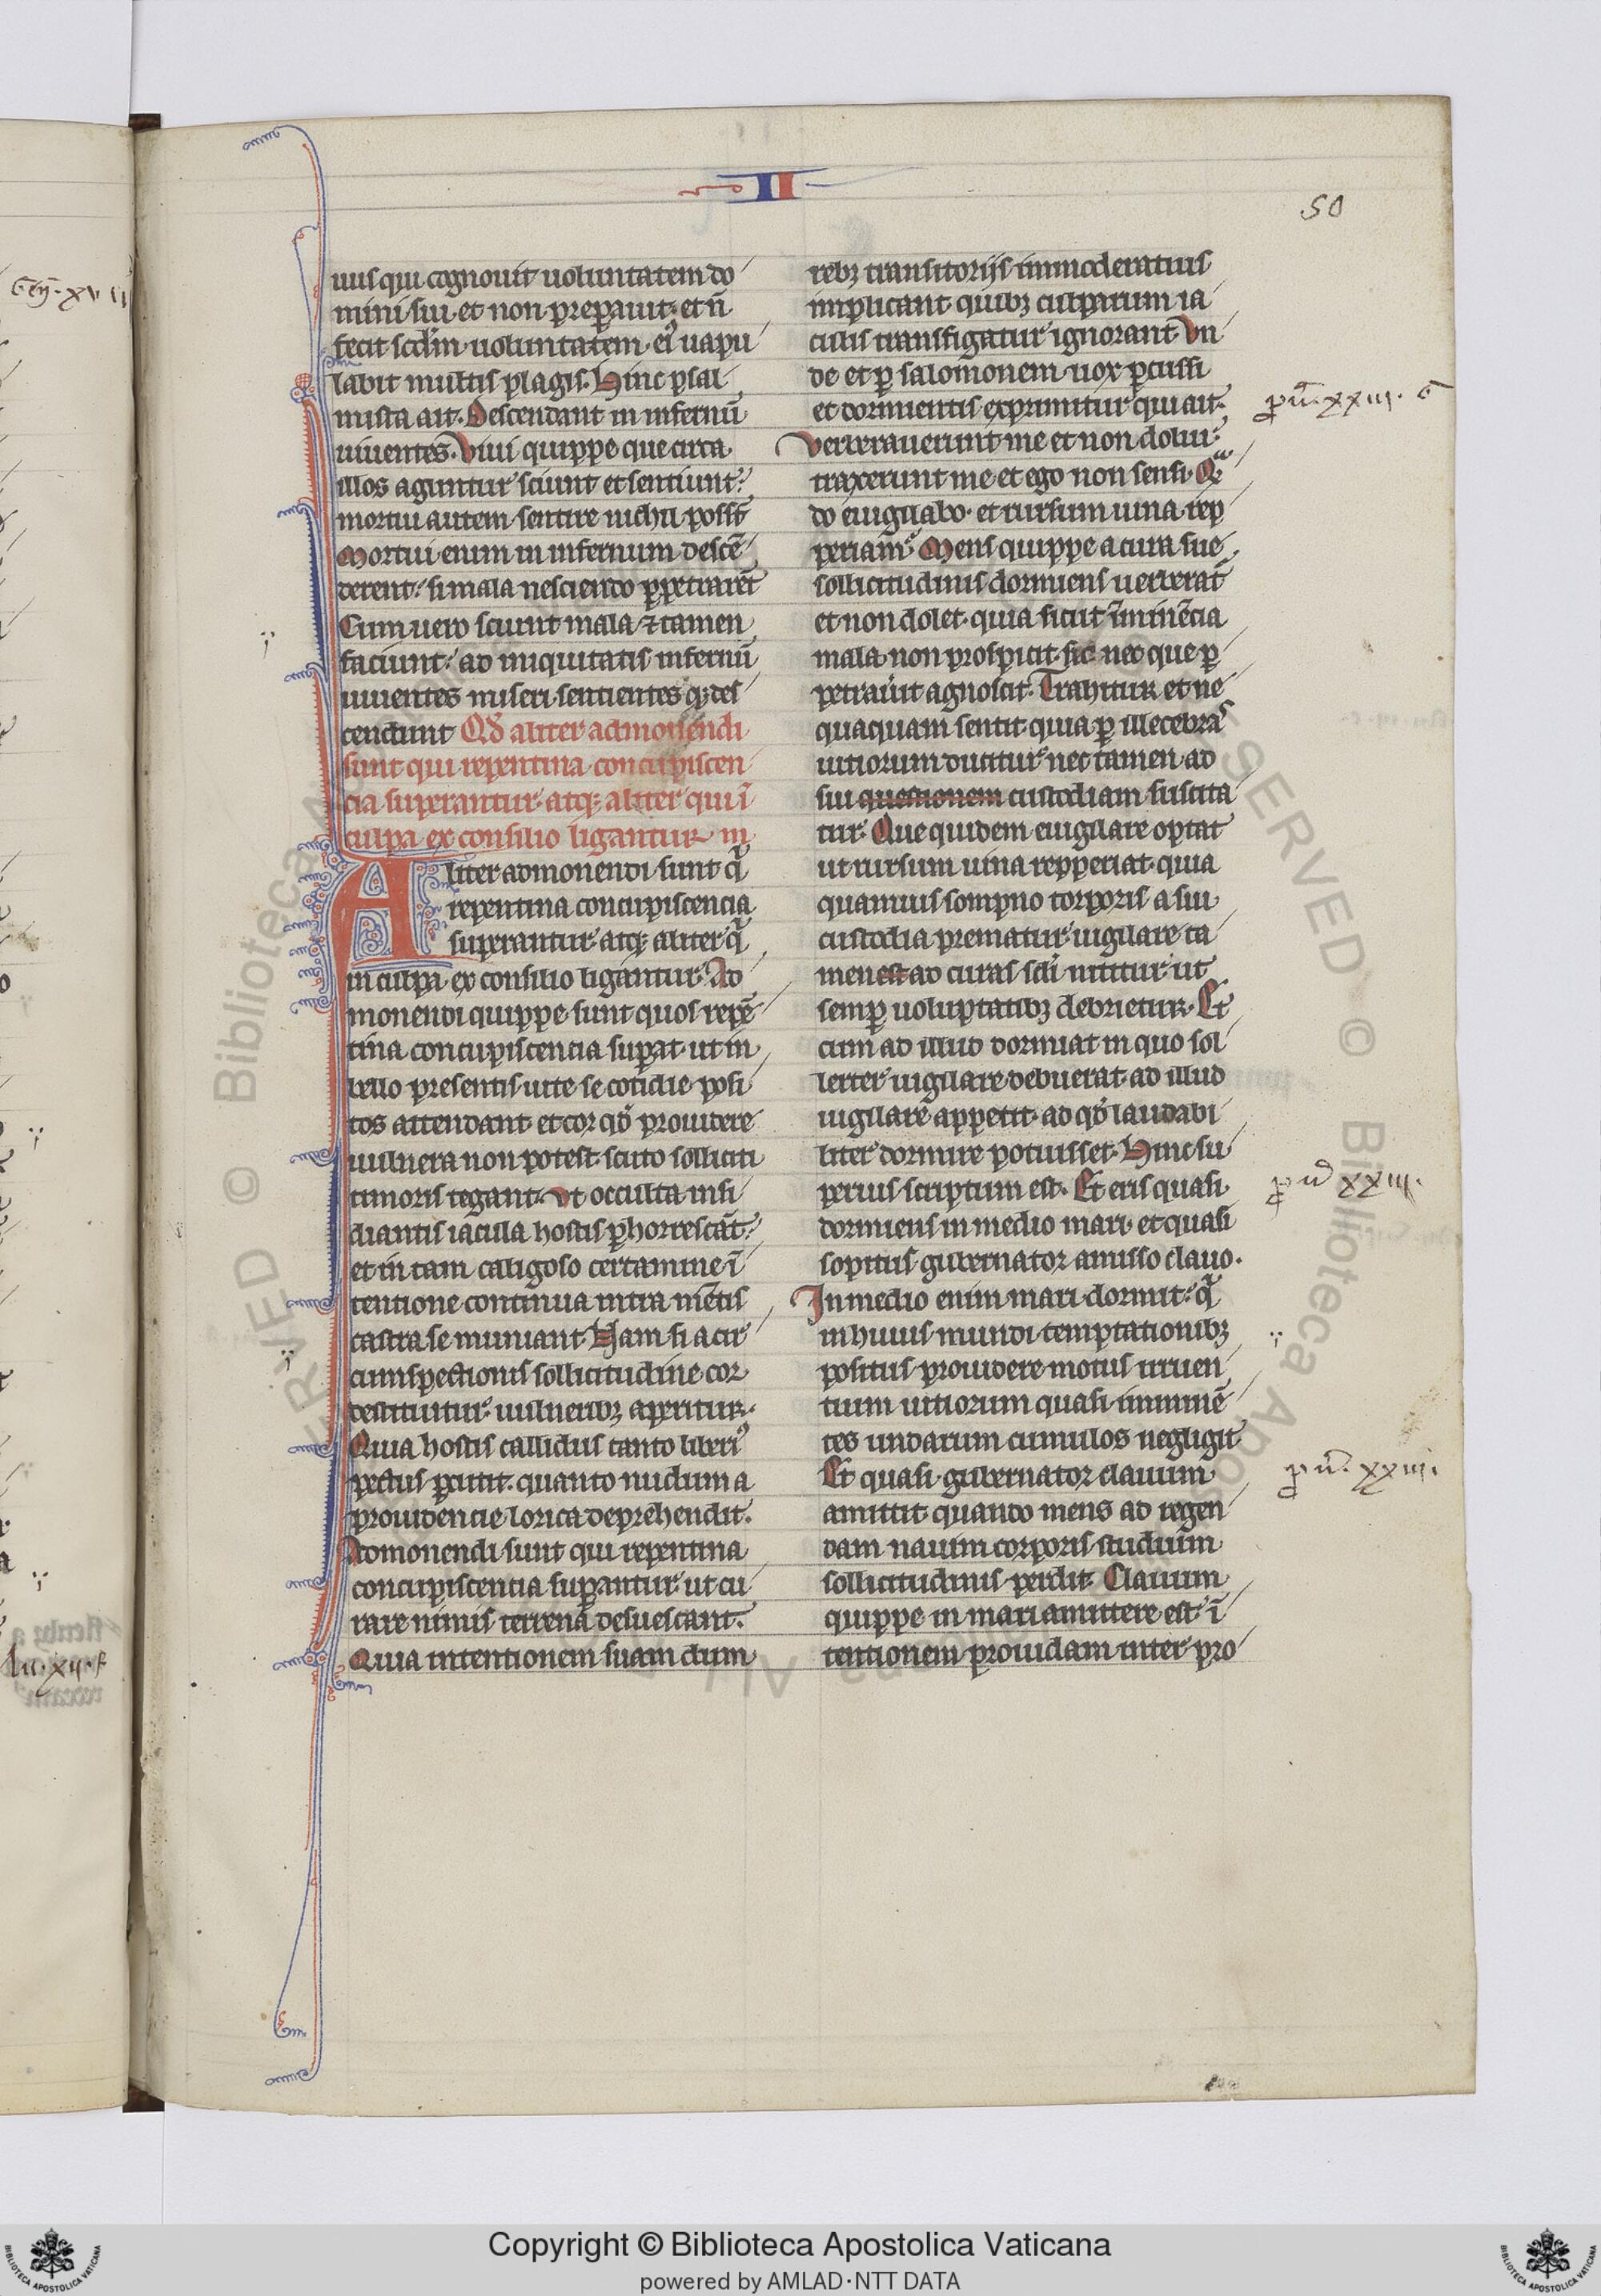 II
50
uus qui cognouit uoluntatem do
mini sui et non preparauit. et n̄
fecit scd̄m uoluntatem ei᷒ uapu
labit multis plagis. Hinc psal
mista ait. Descendant in infernū
uiuentes. Viui quippe que circa
illos aguntur sciunt et sentiunt.
mortui autem sentire nichil possт̄
Mortui enim in infernum descē
derent. si mala nesciendo ꝑpetrarēt
Cum uero sciunt mala ⁊ tamen
faciunt. ad iniquitatis infernū
uiuentes miseri sentientes qꝫ des
cendunt Qd̄ aliter admonendi
sunt qui repentina concupiscen
cia superantur atqꝫ aliter qui ī
culpa ex consilio ligantur III
Aliter admonendi sunt q̄
repentina concupiscencia
superantur atqꝫ aliter q̄
in culpa ex consilio ligantur. Ad
monendi quippe sunt quos repē
tina concupiscencia suꝑat. ut in
bello presentis uite se cotidie posi
tos attendant et cor qd̄ prouidere
uulnera non potest. scuto solliciti
timoris tegant. Vt occulta insi
diantis iacula hostis ꝑhorrescāt.
et in tam caligoso certamine ī
tentione continua intra mētis
castra se muniant. Nam si a cir
cumspectionis sollicitudine cor
destituitur. uulneribꝫ aperitur.
Quia hostis callidus tanto liberi᷒
pectus ꝑcutit. quanto nudum a
prouidencie lorica deprehendit.
Admonendi sunt qui repentina
concupiscentia suꝑantur ut cu
rare nimis terrena desuescant.
Quia intentionem suam dum
rebꝫ transitorijs immoderatius
implicant quibꝫ culparum ia
culis transfigatur ignorant. Vn
de et ꝑ salomonem uox ꝑcussi
et dormientis exprimitur qui ait.
Verberauerunt me et non dolui.
traxerunt me et ego non sensi. Qn̄
do euigilabo. et rursum uina rep
periam. Mens quippe a cura sue
sollicitudinis dormiens uerberat̄
et non dolet. quia sicut īminēcia
mala non prospicit. sic nec que ꝑ
petrauit agnoscit. Trahitur et ne
quaquam sentit. quia ꝑ illecebras
uitiorum ducitur. nec tamen ad
sui questionem custodiam suscita
tur. Que quidem euigilare optat
ut rursum uina repperiat. quia
quamuis sompno torporis a sui
custodia prematur. uigilare ta
men est ad curas sc̄li nititur ut
semꝑ uoluptatibꝫ debrietur. Et
cum ad illud dormiat in quo sol
lerter uigilare debuerat. ad illud
uigilare appetit. ad qd̄ laudabi
liter dormire potuisset. Hinc su
perius scriptum est. Et eris quasi
dormiens in medio mari. et quasi
sopitus gubernator amisso clauo.
In medio enim mari dormit. q̄
in huius mundi temptationibꝫ
positus prouidere motus irruen
tium uitiorum quasi imminē
tes undarum cumulos negligit
Et quasi gubernator clauum
amittit quando mens ad regen
dam nauim corporis studium
sollicitudinis perdit. Clauum
quippe in mari amittere est. ī
tentionem prouidam inter pro
pū. xxiii. c
pū xxiii.
pū. xxiii.
lu. xii. f
Copyright © Biblioteca Apostolica Vaticana
powered by AMLAD·NTT DATA